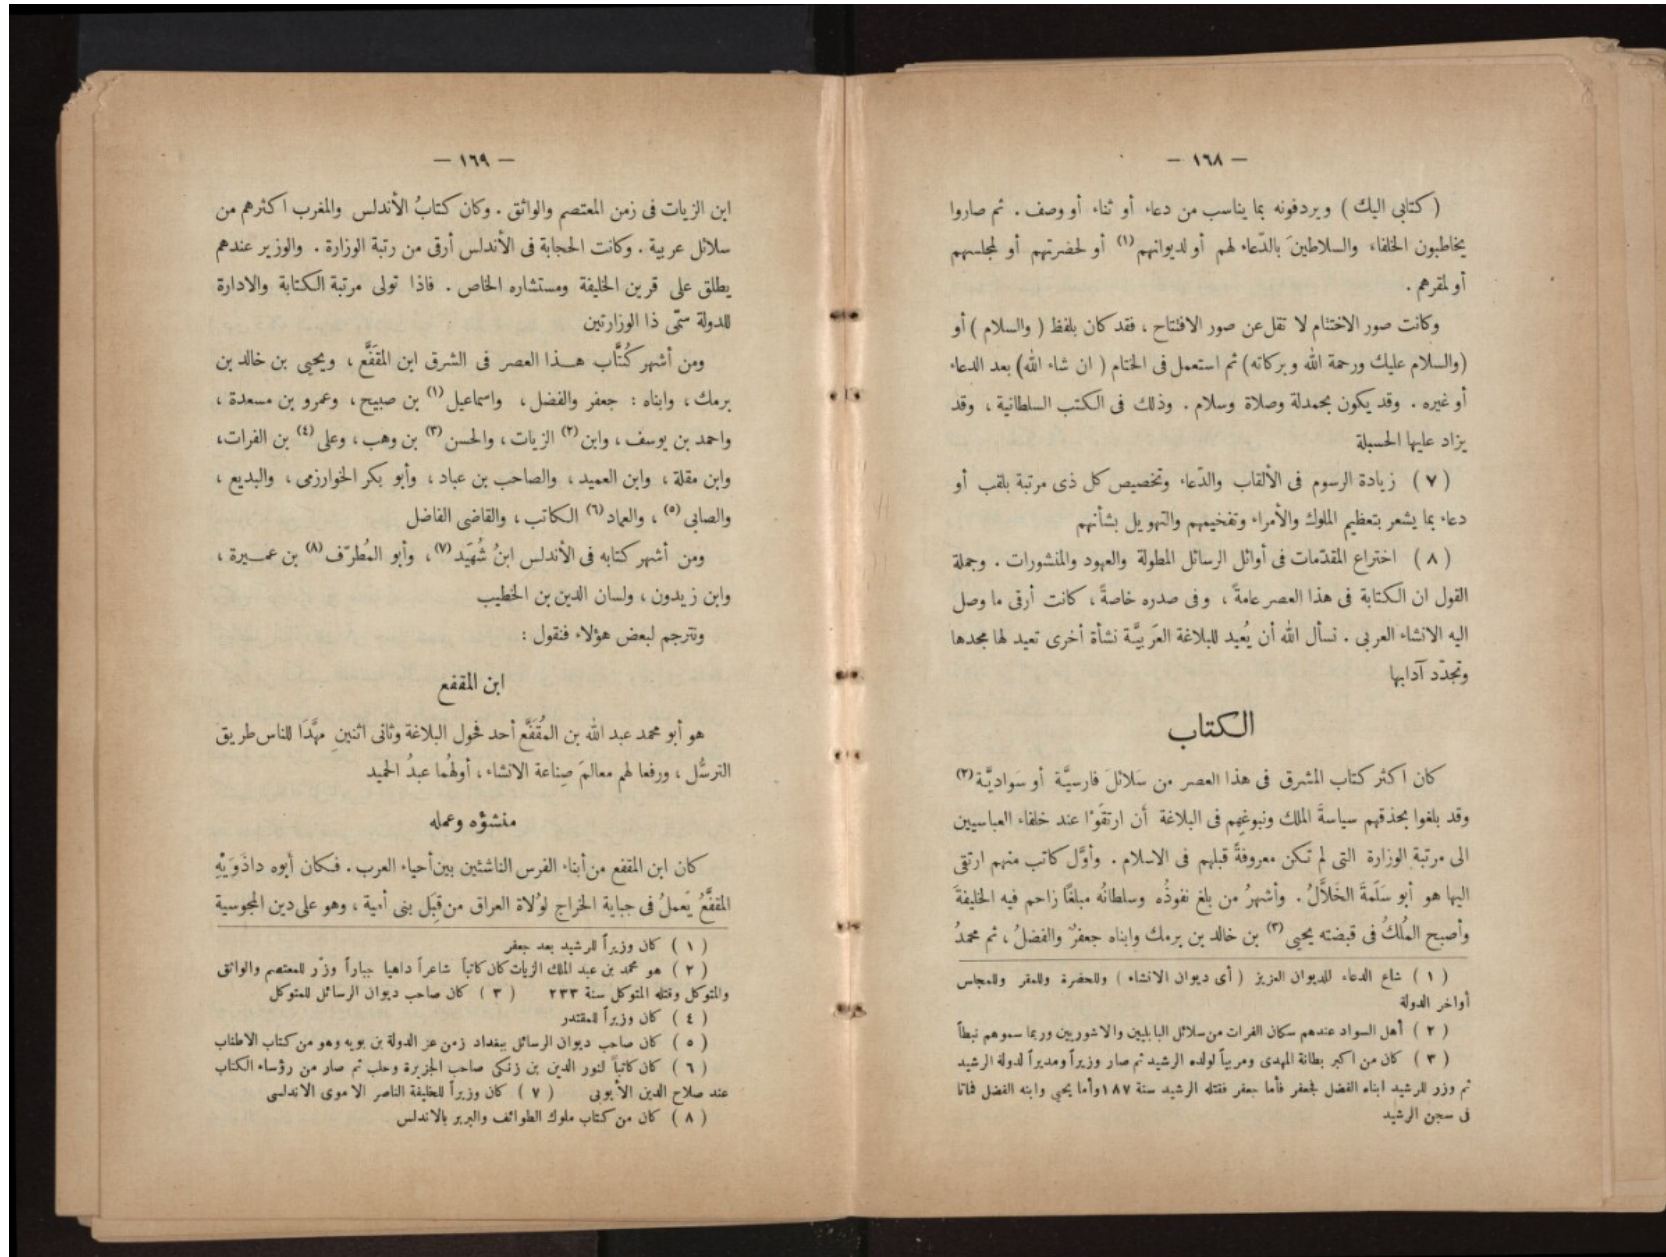 — ١٦٨ —
( كتابى اليك ) ويردفونه بما يناسب من دعاء أو ثناء أو وصف . ثم صاروا
يخاطبون الخلفاء والسلاطينَ بالدّعاء لهم أو لديوانهم (١) أو لحضرتهم أو لمجلسهم
أو لمقرهم .
وكانت صور الاختتام لا تقل عن صور الافتتاح ، فقد كان بلفظ ( والسلام ) أو
(والسلام عليك ورحمة الله وبركاته) ثم استعمل فى الختام ( ان شاء الله) بعد الدعاء
أو غيره . وقد يكون بحمدلة وصلاة وسلام . وذلك فى الكتب السلطانية ، وقد
يزاد عليها الحسبلة
( ٧ ) زيادة الرسوم فى الألقاب والدّعاء وتخصيص كل ذى مرتبة بلقب أو
دعاء بما يشعر بتعظيم الملوك والأمراء وتفخيمهم والتهويل بشأنهم
( ٨ ) اختراع المقدّمات فى أوائل الرسائل المطولة والعهود والمنشورات . وجملة
القول ان الكتابة فى هذا العصر عامةً ، وفى صدره خاصةً ، كانت أرقى ما وصل
اليه الانشاء العربى . نسأل الله أن يُعيد للبلاغة العَربيَّة نشأة أخرى تعيد لها مجدها
وتجدّد آدابها
الكتاب
كان اكثر كتاب المشرق فى هذا العصر من سَلائلَ فارسيَّة أو سَواديَّة (٢)
وقد بلغوا بحذقهم سياسةَ الملك ونبوغهم فى البلاغة أن ارتقَوْا عند خلفاء العباسيين
الى مرتبة الوزارة التى لم تكن معروفةً قبلهم فى الاسلام . وأوَّل كاتب منهم ارتقى
اليها هو أبو سَلَمةَ الخَلاَّلُ . وأشهرُ من بلغ نفوذُه وسلطانُه مبلغًا زاحم فيه الخليفةَ
وأصبح المُلكُ فى قبضته يحيى (٣) بن خالد بن برمك وابناه جعفرٌ والفضلُ ، ثم محمدُ
( ١ ) شاع الدعاء للديوان العزيز ( أى ديوان الانشاء ) وللحضرة وللمقر وللمجلس
أواخر الدولة
( ٢ ) أهل السواد عندهم سكان الفرات من سلائل البابليين والاشوريين وربما سموهم نبطاً
( ٣ ) كان من اكبر بطانة المهدى ومربياً لولده الرشيد ثم صار وزيراً ومديراً لدولة الرشيد
ثم وزر للرشيد ابناه الفضل فجعفر فأما جعفر فقتله الرشيد سنة ١٨٧ وأما يحيى وابنه الفضل فماتا
فى سجن الرشيد
— ١٦٩ —
ابن الزيات فى زمن المعتصم والواثق . وكان كتابُ الأندلس والمغرب اكثرهم من
سلائل عربية . وكانت الحجابة فى الأندلس أرقى من رتبة الوزارة . والوزير عندهم
يطلق على قرين الخليفة ومستشاره الخاص . فاذا تولى مرتبة الكتابة والادارة
للدولة سمّى ذا الوزارتين
ومن أشهر كُتَّاب هـــذا العصر فى الشرق ابن المقَفَّع ، ويحيى بن خالد بن
برمك ، وابناه : جعفر والفضل ، واسماعيل (١) بن صبيح ، وعمرو بن مسعدة ،
واحمد بن يوسف ، وابن (٢) الزيات ، والحسن (٣) بن وهب ، وعلى (٤) بن الفرات ،
وابن مقلة ، وابن العميد ، والصاحب بن عباد ، وأبو بكر الخوارزمى ، والبديع ،
والصابى (٥) ، والعماد (٦) الكاتب ، والقاضى الفاضل
ومن أشهر كتابه فى الأندلس ابنُ شُهَيْد (٧) ، وأبو المُطرّف (٨) بن عمـــيرة ،
وابن زيدون ، ولسان الدين بن الخطيب
ونترجم لبعض هؤلاء فنقول :
ابن المقفع
هو أبو محمد عبد الله بن المُقَفَّع أحد فحول البلاغة وثانى اثنينِ مهَّدَا للناس طريق
الترسُّل ، ورفعا لهم معالمَ صِناعة الانشاء ، أولهُما عبدُ الحميد
منشؤه وعمله
كان ابن المقفع من أبناء الفرس الناشئين بين أحياء العرب . فكان أبوه داذَوَيْهِ
المقفَّعُ يَعملُ فى جباية الخراج لوُلاة العراق من قِبَل بنى أمية ، وهو على دين المجوسية
( ١ ) كان وزيراً للرشيد بعد جعفر
( ٢ ) هو محمد بن عبد الملك الزيات كان كاتباً شاعراً داهيا جباراً وزّر للمعتصم والواثق
والمتوكل وقتله المتوكل سنة ٢٣٣ ( ٣ ) كان صاحب ديوان الرسائل للمتوكل
( ٤ ) كان وزيراً للمقتدر
( ٥ ) كان صاحب ديوان الرسائل ببغداد زمن عز الدولة بن بويه وهو من كتاب الاطناب
( ٦ ) كان كاتباً لنور الدين بن زنكى صاحب الجزيرة وحلب ثم صار من رؤساء الكتاب
عند صلاح الدين الأيوبى ( ٧ ) كان وزيراً للخليفة الناصر الاموى الاندلسى
( ٨ ) كان من كتاب ملوك الطوائف والبربر بالاندلس